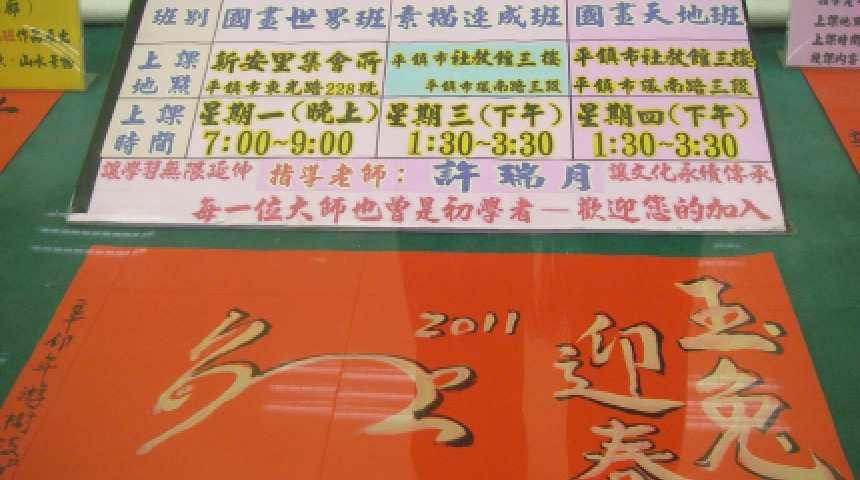 班別 國畫世界班 素描速成班 國畫天地班
上課地點 新安里集會所 平鎮市社教館三樓 平鎮市社教館三樓
平鎮市東光路228號 平鎮市環南路三段 平鎮市環南路三段
上課時間 星期一(晚上) 星期三(下午) 星期四(下午)
7:00~9:00 1:30~3:30 1:30~3:30
讓學習無限延伸 指導老師：許瑞月 讓文化永續傳承
每一位大師也曾是初學者—歡迎您的加入
玉兔
迎春
2011
辛卯年游